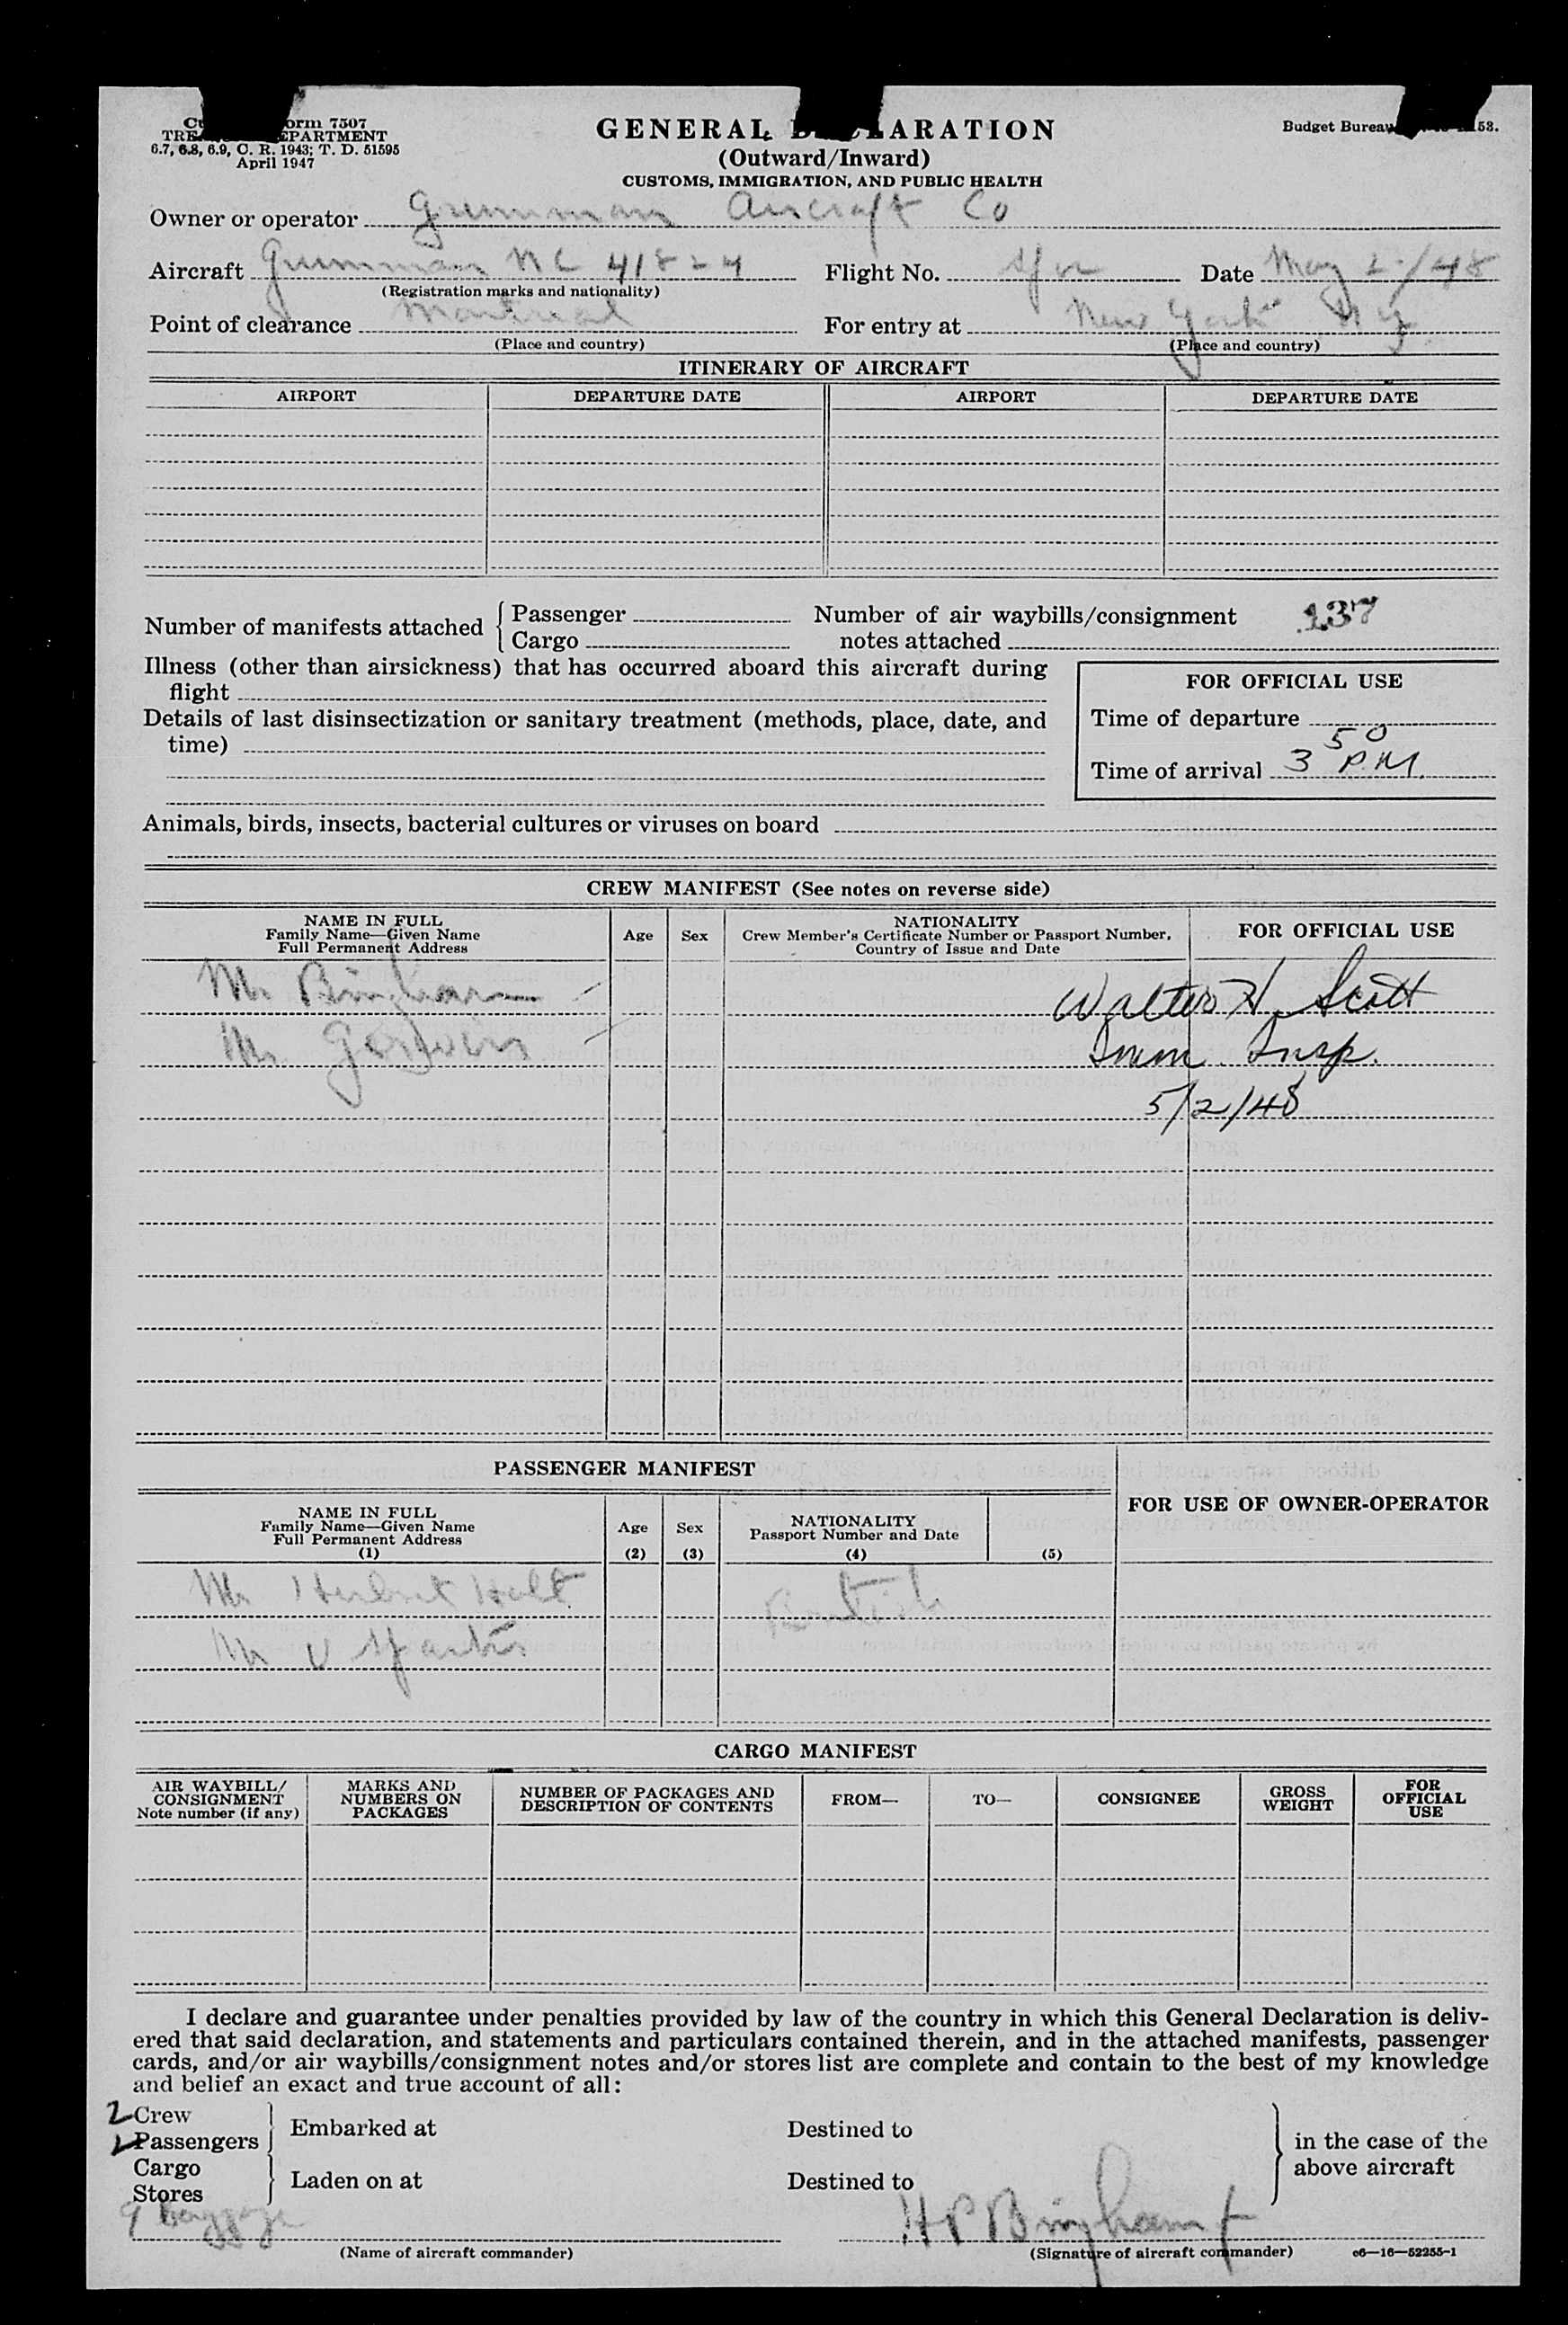 orm 7507
GENERAL ARATION
Budget Bureau 53.
TRE EPARTMENT
(Outward/Inward)
6.7, 6.8, 6.9, C. R. 1943; T. D. 51595
April 1947
CUSTOMS, IMMIGRATION, AND PUBLIC HEALTH
Owner or operator Grumman Aircraft Co
Aircraft Grumman NC 41824 Flight No. Date May 2/48
(Registration marks and nationality)
Point of clearance Montreal For entry at New York N Y
(Place and country) (Place and country)
ITINERARY OF AIRCRAFT
AIRPORT DEPARTURE DATE AIRPORT DEPARTURE DATE
Number of manifests attached { Passenger Number of air waybills/consignment 137
Cargo notes attached
Illness (other than airsickness) that has occurred aboard this aircraft during
flight
FOR OFFICIAL USE
Details of last disinsectization or sanitary treatment (methods, place, date, and
time)
Time of departure
Time of arrival 3 50 P.M.
Animals, birds, insects, bacterial cultures or viruses on board
CREW MANIFEST (See notes on reverse side)
NAME IN FULL
Family Name—Given Name
Full Permanent Address
Age Sex
NATIONALITY
Crew Member's Certificate Number or Passport Number,
Country of Issue and Date
FOR OFFICIAL USE
Mr Bingham
Walter H. Scott
Mr.
Imm. Insp.
5/2/48
PASSENGER MANIFEST
FOR USE OF OWNER-OPERATOR
NAME IN FULL
Family Name—Given Name
Full Permanent Address
(1)
Age
(2)
Sex
(3)
NATIONALITY
Passport Number and Date
(4) (5)
Mr Herbert Holt British
Mr V
CARGO MANIFEST
AIR WAYBILL/
CONSIGNMENT
Note number (if any)
MARKS AND
NUMBERS ON
PACKAGES
NUMBER OF PACKAGES AND
DESCRIPTION OF CONTENTS
FROM—
TO—
CONSIGNEE
GROSS
WEIGHT
FOR
OFFICIAL
USE
I declare and guarantee under penalties provided by law of the country in which this General Declaration is deliv-
ered that said declaration, and statements and particulars contained therein, and in the attached manifests, passenger
cards, and/or air waybills/consignment notes and/or stores list are complete and contain to the best of my knowledge
and belief an exact and true account of all:
2 Crew
Passengers
Embarked at Destined to
in the case of the
above aircraft
Cargo
Stores
Laden on at Destined to
9 Baggage
H P Bingham
(Name of aircraft commander) (Signature of aircraft commander) c6—16—52255-1